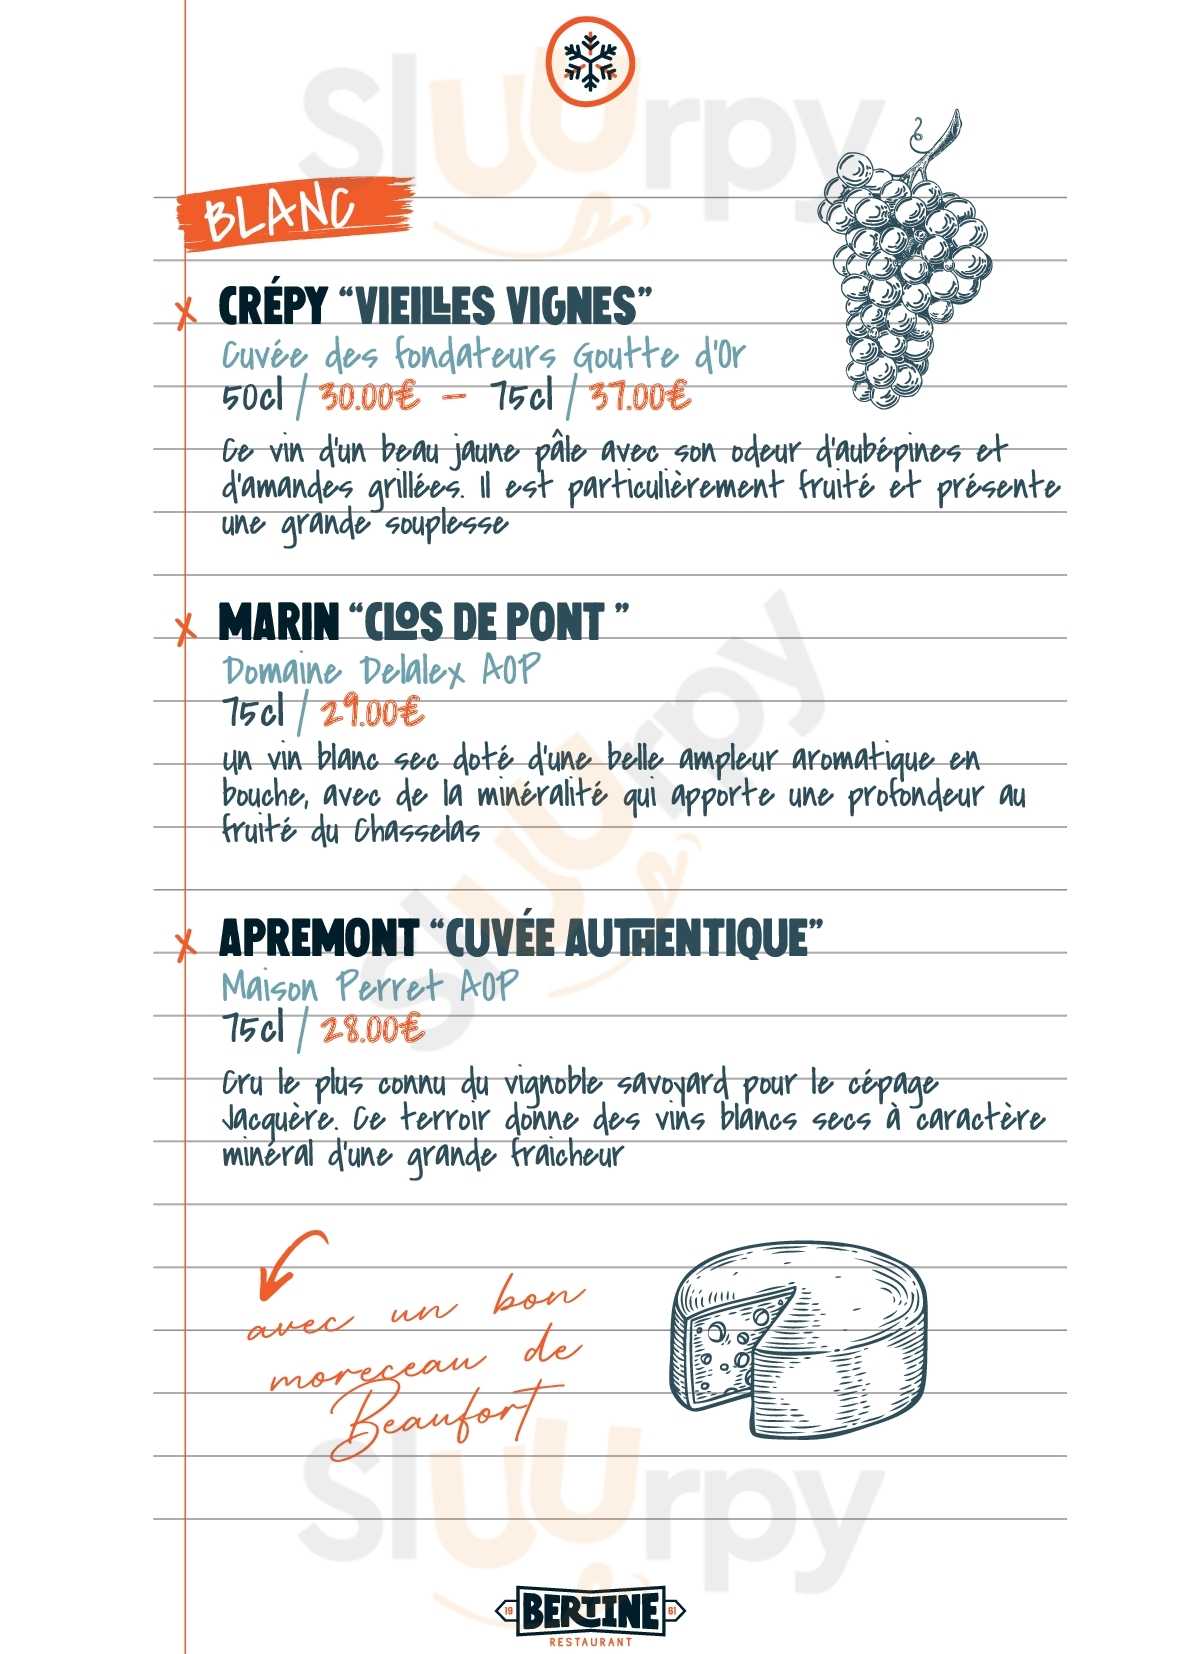 Sluurpy
BLANC
x CRÉPY “VIEILLES VIGNES”
Cuvée des fondateurs Goutte d'Or
50cl / 30.00€ – 75cl / 37.00€
Ce vin d'un beau jaune pâle avec son odeur d'aubépines et
d'amandes grillées. Il est particulièrement fruité et présente
une grande souplesse
x MARIN “CLOS DE PONT ”
Domaine Delalex AOP
75cl / 29.00€
Un vin blanc sec doté d'une belle ampleur aromatique en
bouche, avec de la minéralité qui apporte une profondeur au
fruité du Chasselas
Sluurpy
x APREMONT “CUVÉE AUTHENTIQUE”
Maison Perret AOP
75cl / 28.00€
Cru le plus connu du vignoble savoyard pour le cépage
Jacquère. Ce terroir donne des vins blancs secs à caractère
minéral d'une grande fraicheur
avec un bon
moreceau de
Beaufort
Sluurpy
19 BERTINE 61
RESTAURANT